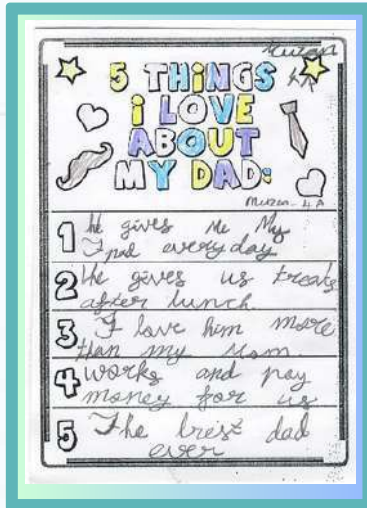 5 THINGS
i LOVE
ABOUT
MY DAD:
1 he gives me My
Ipad everyday
2 He gives us treats
after lunch
3 I love him more
than my mom.
4 works and pay
money for us
5 The best dad
ever